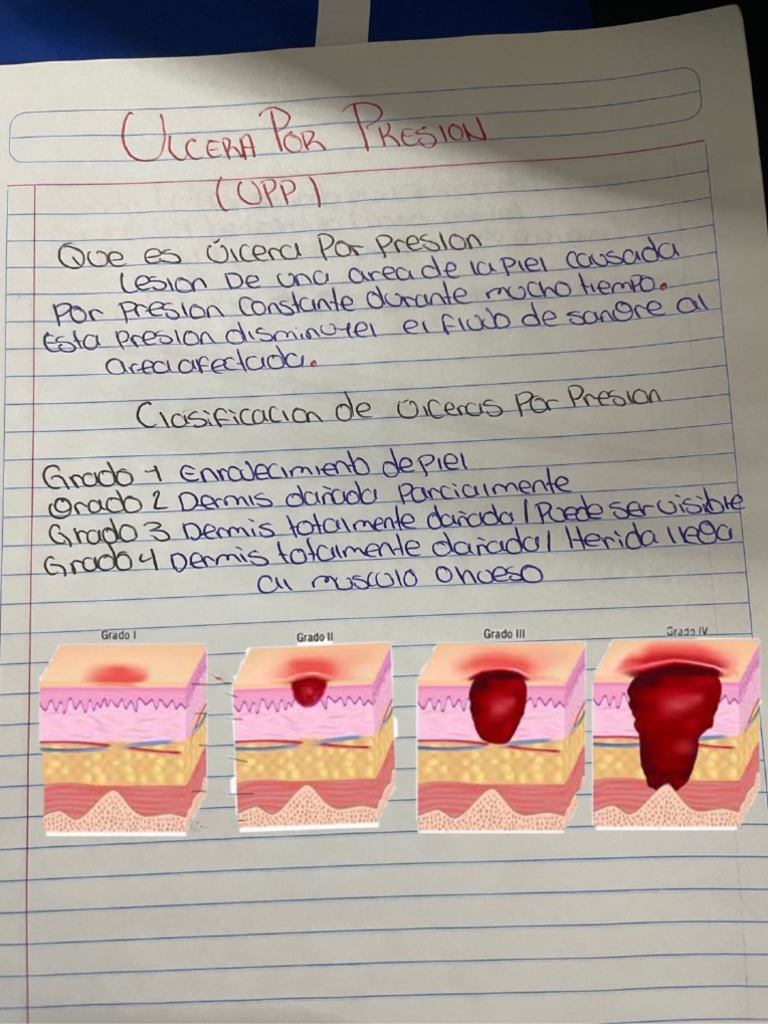 ULCERA POR PRESION
(UPP)
Que es úlcera Por presion
Lesion De una area de la piel causada
Por presion constante durante mucho tiempo.
Esta presion disminuye el flujo de sangre al
area afectada.
Clasificacion de ulceras Por Presion
Grado 1 Enrojecimiento de piel
Grado 2 Dermis dañada Parcialmente
Grado 3 Dermis totalmente dañada / Puede ser visible
Grado 4 Dermis totalmente dañada / Herida llega
al musculo o hueso
Grado I Grado II Grado III Grado IV